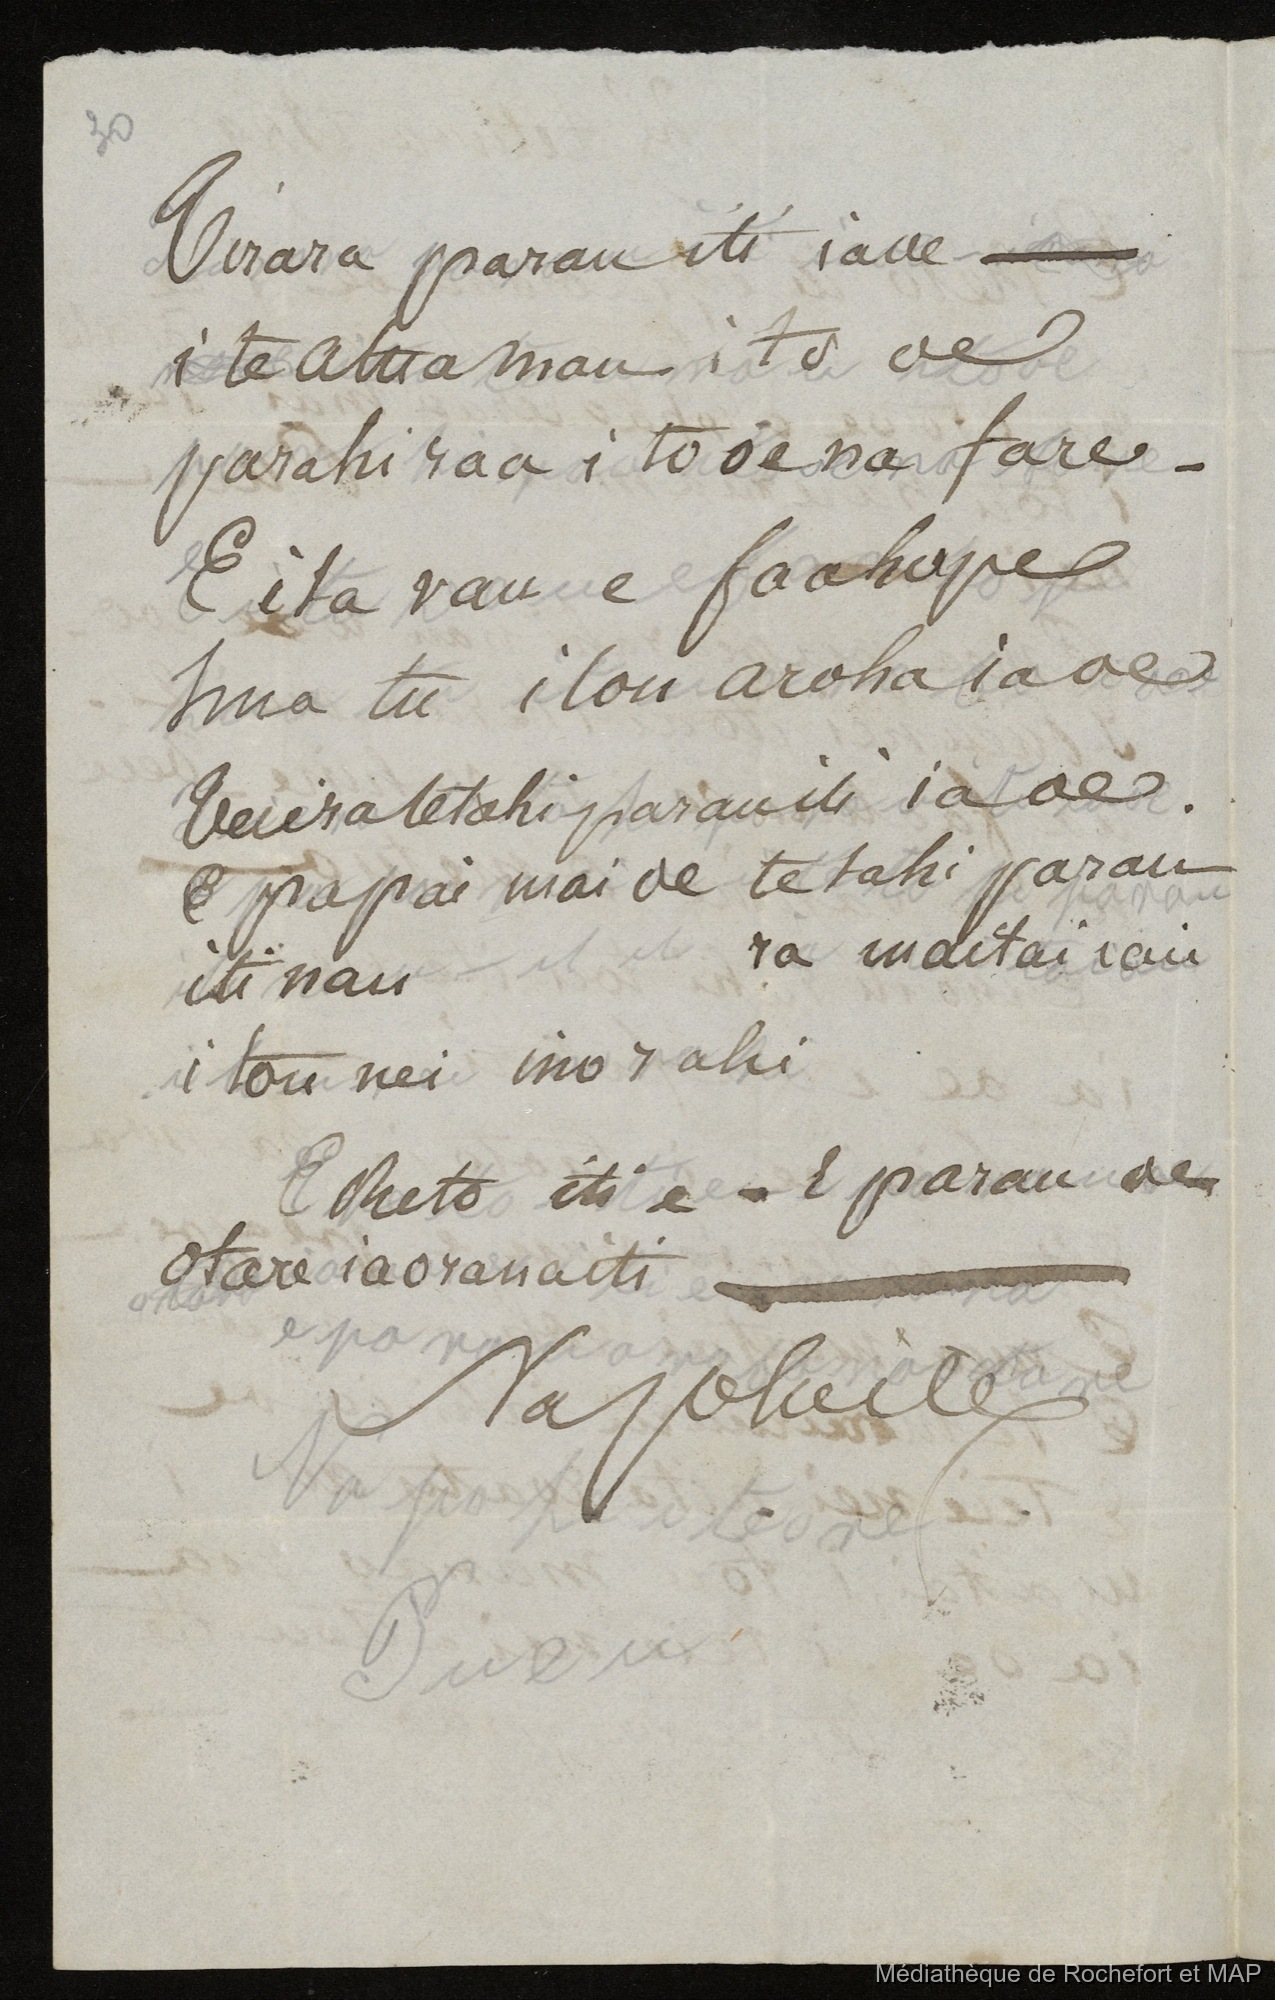 30
Tirara parau iti iaoe
i te Atua mau i to oe
parahiraa i to oe na fare -
E ita vau e faahope
hua tu i tou aroha ia oe
Teiera tetahi parau iti ia oe.
E papai mai oe tetahi parau
iti nau ra maitai iau
i tou nei ino rahi
E Rheto iti e - E parau oe
otare iaoranaiti
Napoheite
Napohiteore
Pueu
Médiathèque de Rochefort et MAP